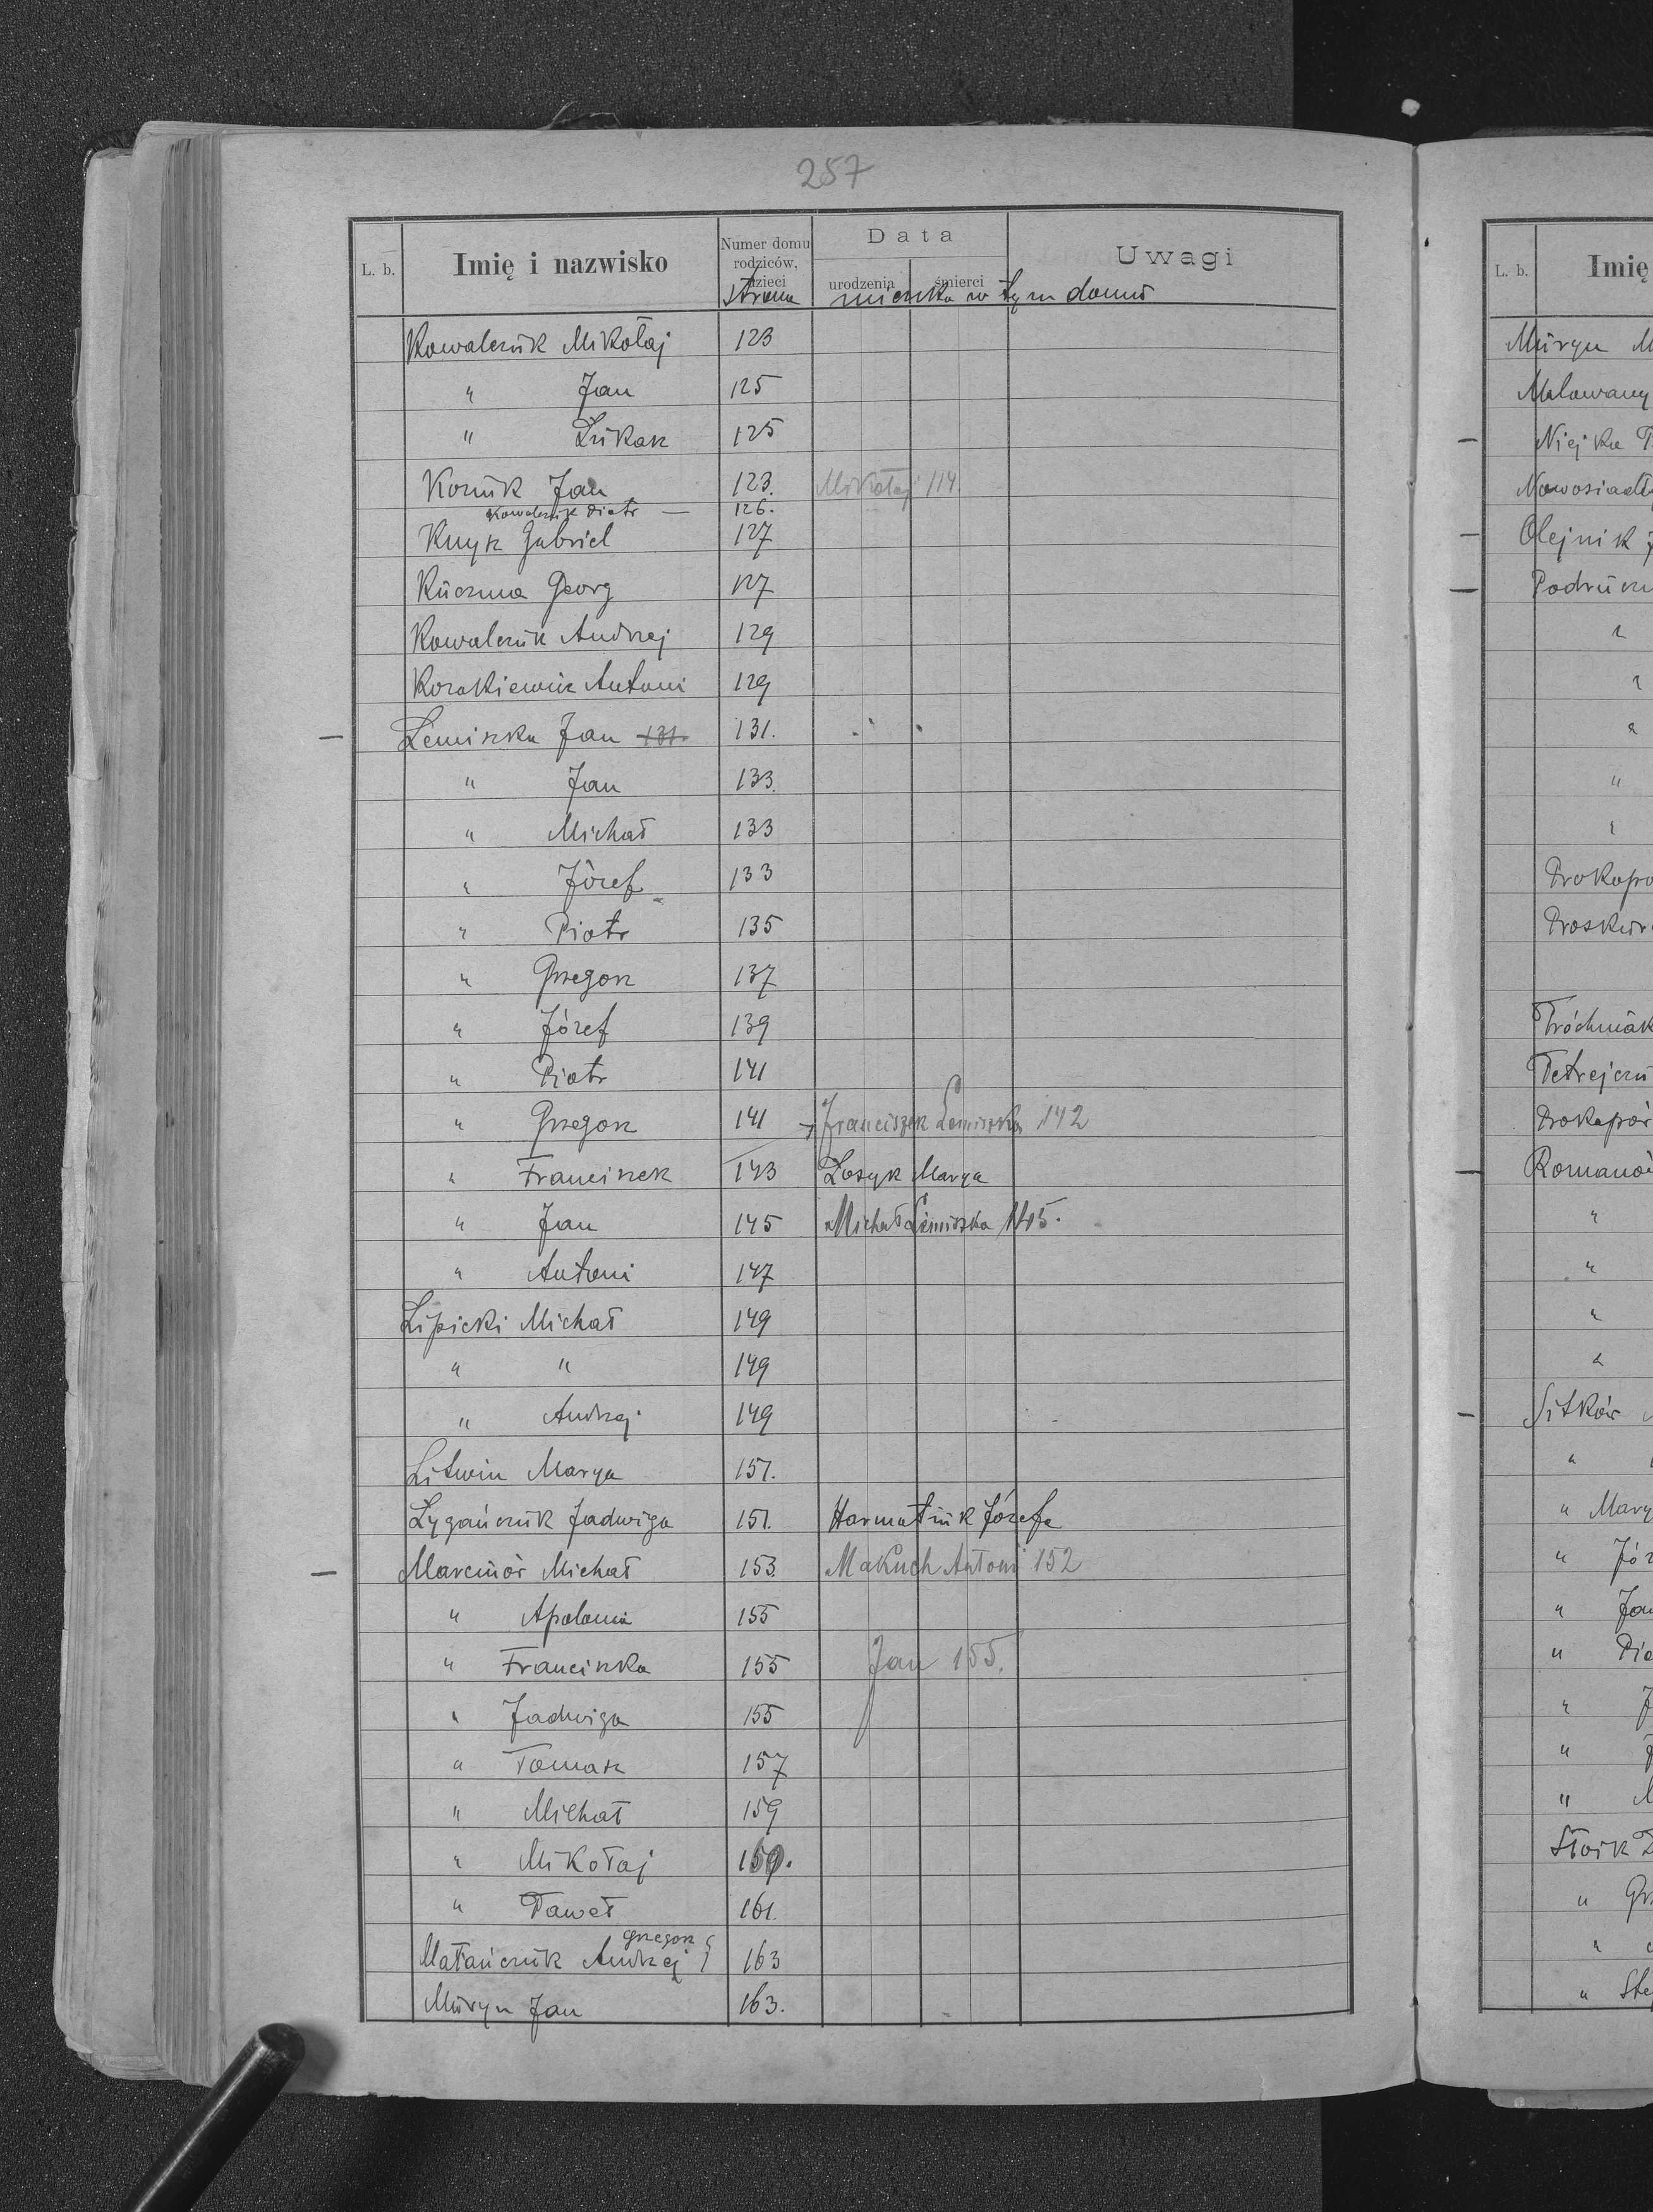 257
L. b. Imię i nazwisko Numer domu rodziców, dzieci Data urodzenia śmierci Uwagi
strona mieszka w tym domu
Kowalczuk Mikołaj 123
" Jan 125
" Łukasz 125
Koszuk Jan 123. Mikołaj 114.
Kowalczuk Piotr — 126.
Kuyk Gabriel 127
Kuczma Georg 127
Kowalczuk Andrzej 129
Kozakiewicz Antoni 129
— Lemiszka Jan 131. 131.
" Jan 133.
" Michał 133
" Józef 133
" Piotr 135
" Grzegorz 137
" Józef 139
" Piotr 141
" Grzegorz 141 + Franciszek Lemiszka 142
" Franciszek 143 Losyk Marya
" Jan 145 Michał Lemiszka 145.
" Antoni 147
Lipicki Michał 149
" " 149
" Andrzej 149
Litwin Marya 151.
Łygańczuk Jadwiga 151. Harmatiuk Józefa
— Marciniów Michał 153. Makuch Antoni 152
" Apolonia 155
" Franciszka 155 Jan 155.
" Jadwiga 155
" Tomasz 157
" Michał 159
" Mikołaj 159.
" Paweł 161.
Grzegorz
Matańczuk Andrzej } 163
Muryn Jan 163.
L. b. Imię
Muryn M
Malowany
— Niejka
Nowosiadły
— Olejnik J
— Podruczn
"
"
"
"
"
Prokopo
Proskur
Próchniak
Petrejczu
Prokopów
— Romanów
"
"
"
"
— Sitków
"
" Mary
" Józ
" Jan
" Pio
" J
" J
" M
Stoik
" Grz
"
" Ste